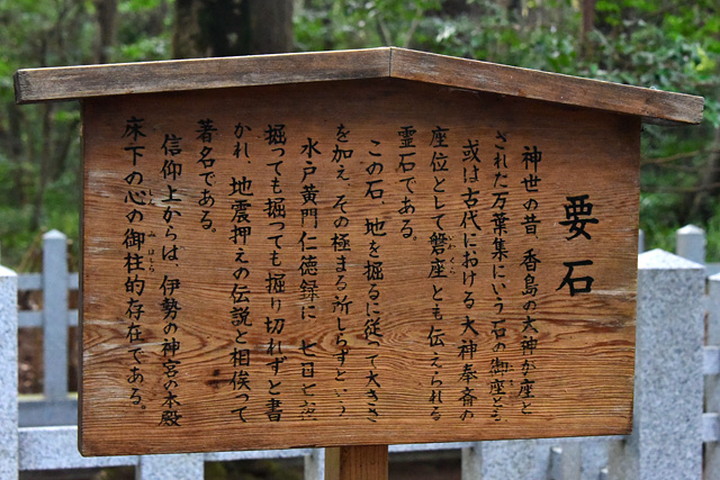 要石
神世の昔、香島の大神が座と
された万葉集にいう石の御座とも
或は古代における大神奉斎の
座位として磐座とも伝えられる
いわくら
霊石である。
この石、地を掘るに従って大きさ
を加え、その極まる所しらずという
水戸黄門仁徳録に、七日七夜
掘っても掘っても掘り切れずと書
かれ、地震押えの伝説と相俟って
著名である。
信仰上からは、伊勢の神宮の本殿
床下の心の御柱的存在である。
しん みはしら